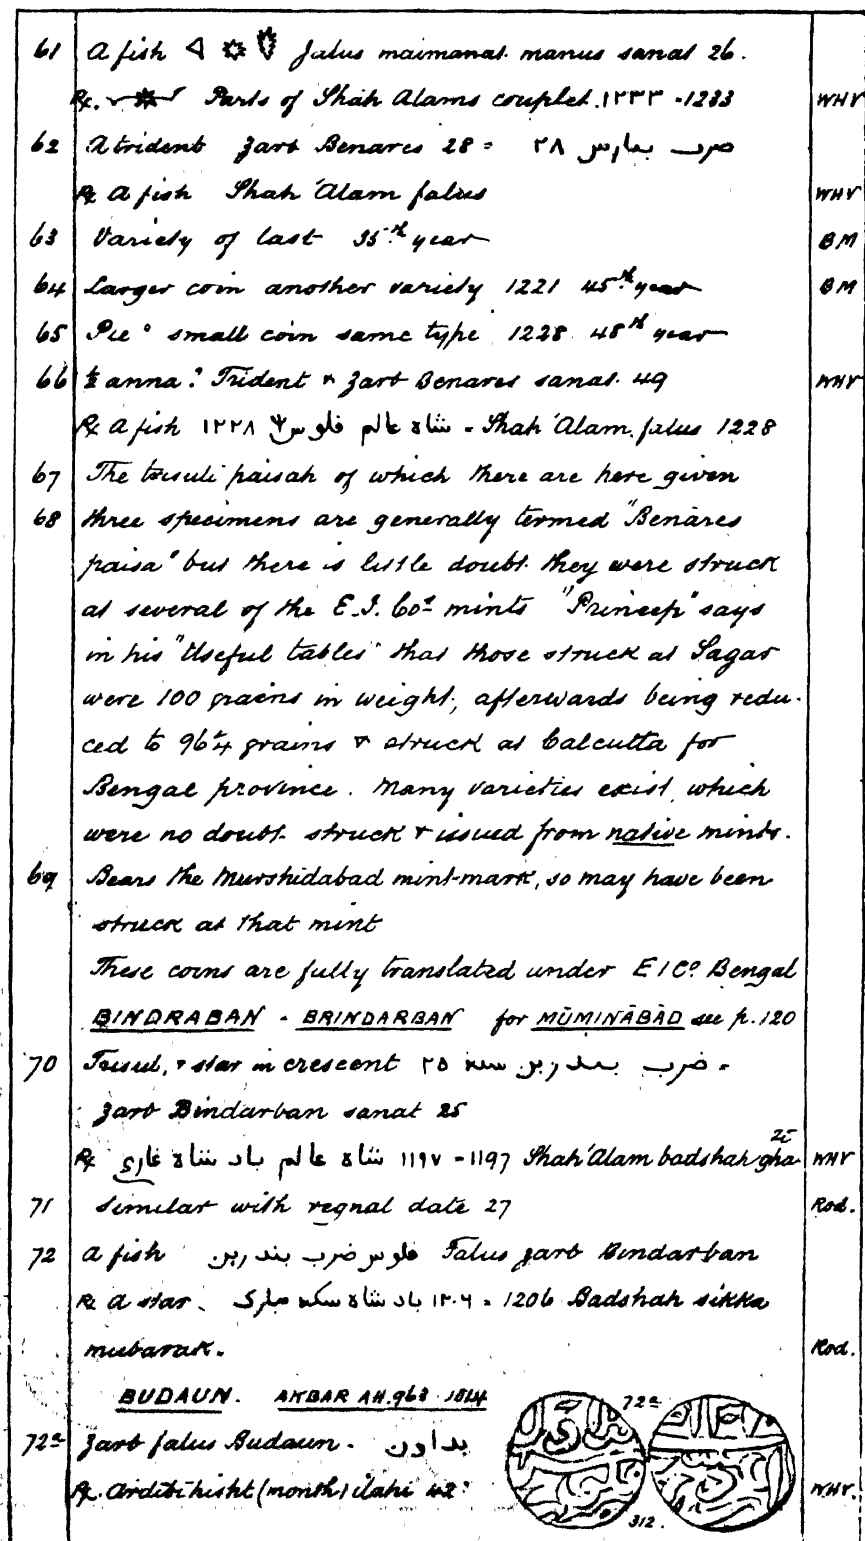 61 A fish Jalus maimanat manus sanat 26.
Rx. Parts of Shah Alams couplet. ۱۲۳۳ - 1233 WHV
62 A trident Zarb Benares 28 = ضرب بنارس ۲۸
Rx A fish Shah 'Alam falus WHV
63 Variety of last 35th year BM
64 Larger coin another variety 1221 45th year BM
65 Pie? small coin same type 1228 48th year
66 ½ anna? Trident & Zarb Benares sanat. 49 WHV
Rx A fish شاه عالم فلوس ۱۲۲۸ = Shah 'Alam. falus 1228
67 The trisuli paisah of which there are here given
68 three specimens are generally termed "Benares
paisa" but there is little doubt they were struck
at several of the E.I. Co's mints "Prinsep" says
in his "Useful tables" that those struck at Sagar
were 100 grains in weight, afterwards being redu-
ced to 96¼ grains & struck at Calcutta for
Bengal province. Many varieties exist, which
were no doubt struck & issued from native mints.
69 Bears the Murshidabad mint-mark, so may have been
struck at that mint
These coins are fully translated under E I Co Bengal
BINDRABAN - BRINDARBAN for MŪMINĀBĀD see p. 120
70 Trisul, & star in crescent ضرب بندربن سنه ۲۵ =
Zarb Bindarban sanat 25
Rx شاه عالم باد شاه غازي ۱۱۹۷ - 1197 Shah 'Alam badshah ghazi WHV
71 Similar with regnal date 27 Rod.
72 A fish فلوس ضرب بندربن Falus zarb Bindarban
Rx A star. باد شاه سكه مبارك ۱۲۰۶ = 1206 Badshah sikka
mubarak. Rod.
BUDAUN. AKBAR AH. 963 - 1014
72a Zarb falus Budaun. بداون 72a
Rx. Ardibihisht (month) ilahi 42? WHV.
312.